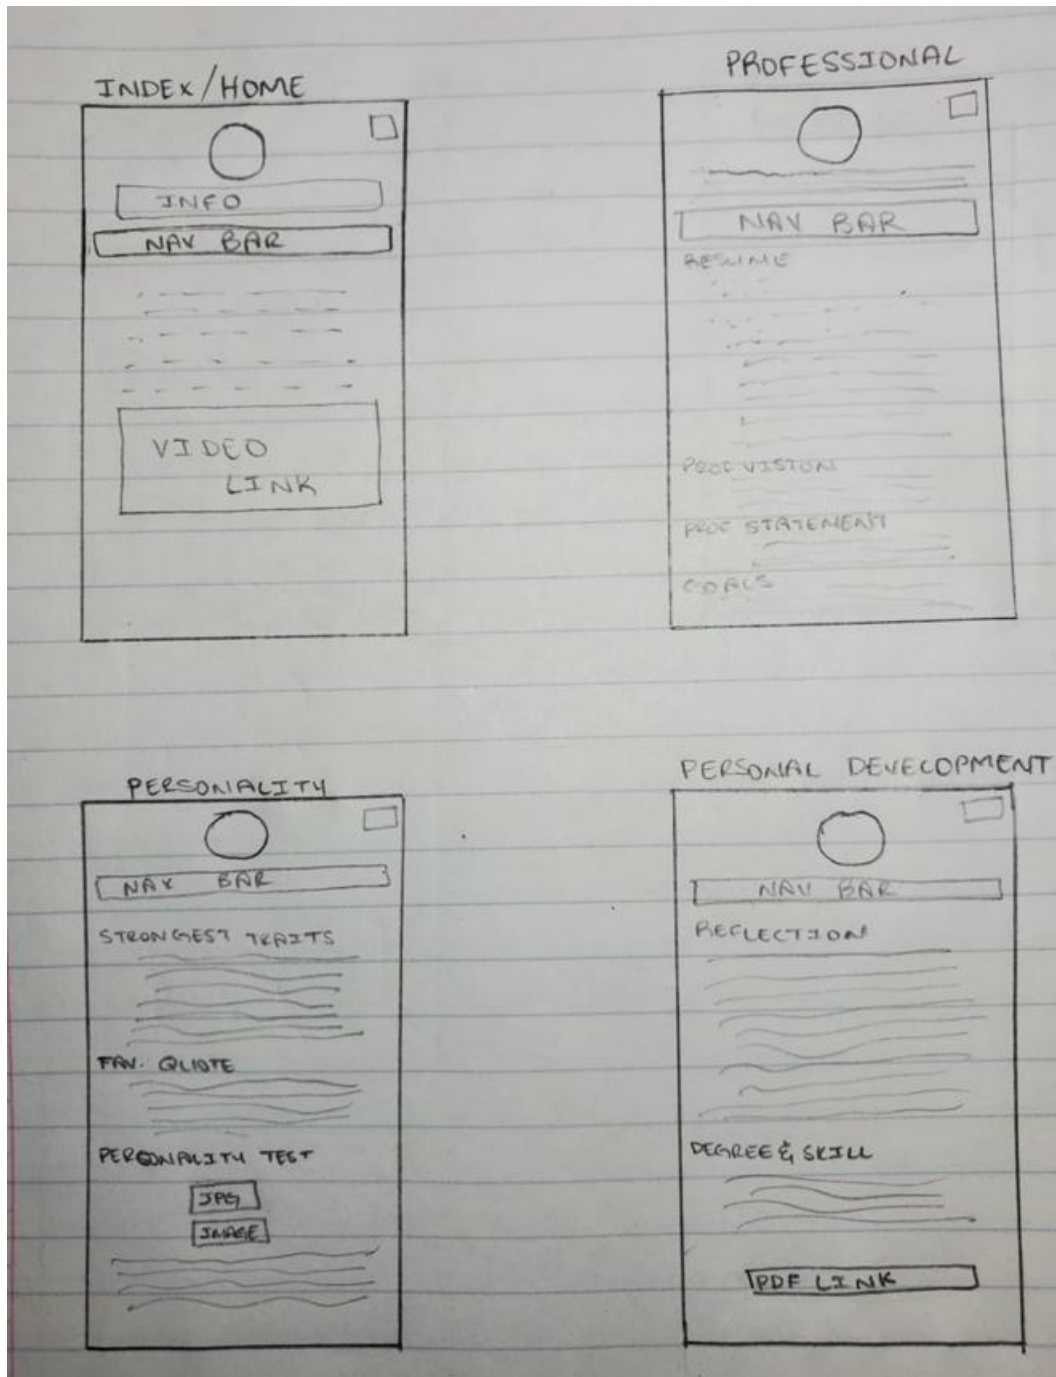 INDEX/HOME
INFO
NAV BAR
VIDEO
LINK
PROFESSIONAL
NAV BAR
RESUME
PROF VISION
PROF STATEMENT
GOALS
PERSONALITY
NAV BAR
STRONGEST TRAITS
FAV. QUOTE
PERSONALITY TEST
JPG
IMAGE
PERSONAL DEVELOPMENT
NAV BAR
REFLECTION
DEGREE & SKILL
PDF LINK